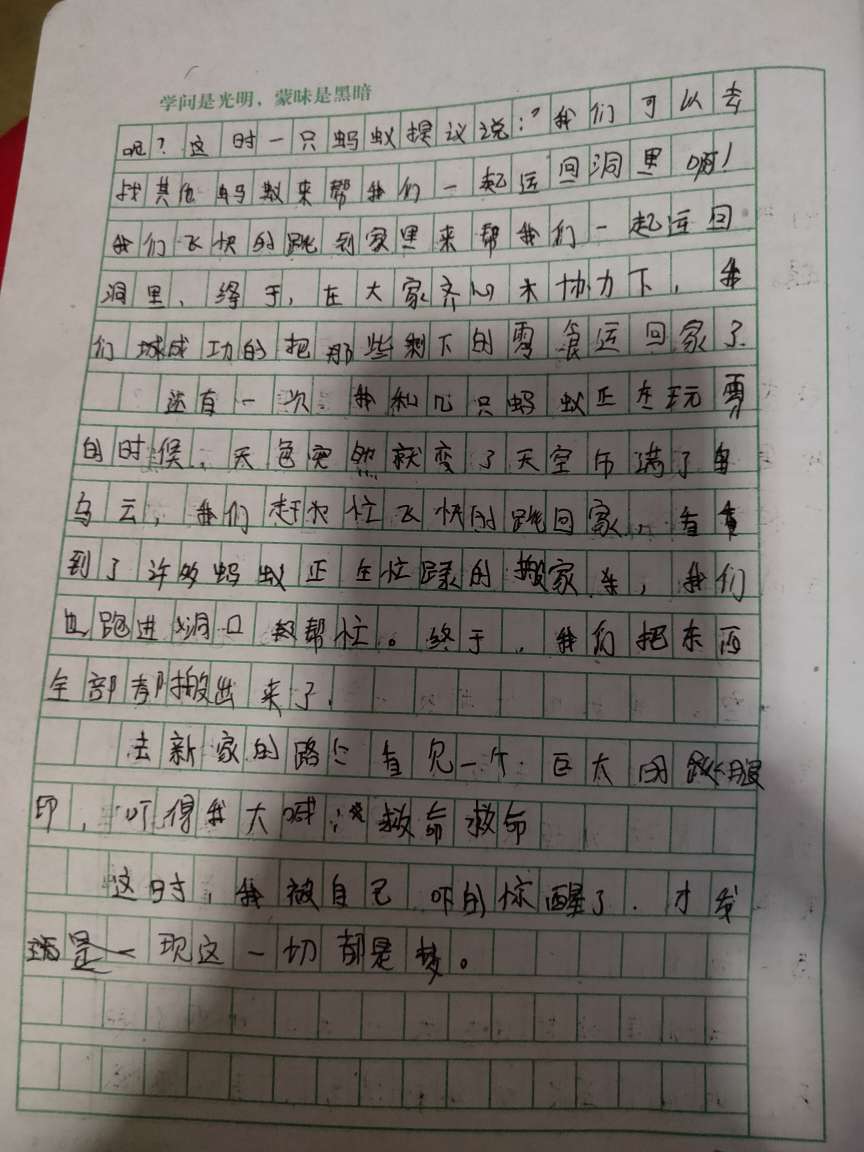 学问是光明，蒙昧是黑暗
呢？这时一只蚂蚁提议说：“我们可以去
找其他蚂蚁来帮我们一起运回洞里啊！
我们飞快的跑到家里来帮我们一起运回
洞里，终于，在大家齐心协力下，我
们成功的把那些剩下的零食运回家了.
还有一次，我和几只蚂蚁正在玩雪
的时候，天色突然就变了天空布满了
乌云，我们赶忙飞快的跑回家，看
到了许多蚂蚁正在忙碌的搬家，我们
也跑进洞口帮忙。终于，我们把东西
全部都搬出来了.
去新家的路上看见一个巨大的脚
印，吓得我大喊：“救命救命
这时，我被自己吓的惊醒了.才发
现这一切都是梦。